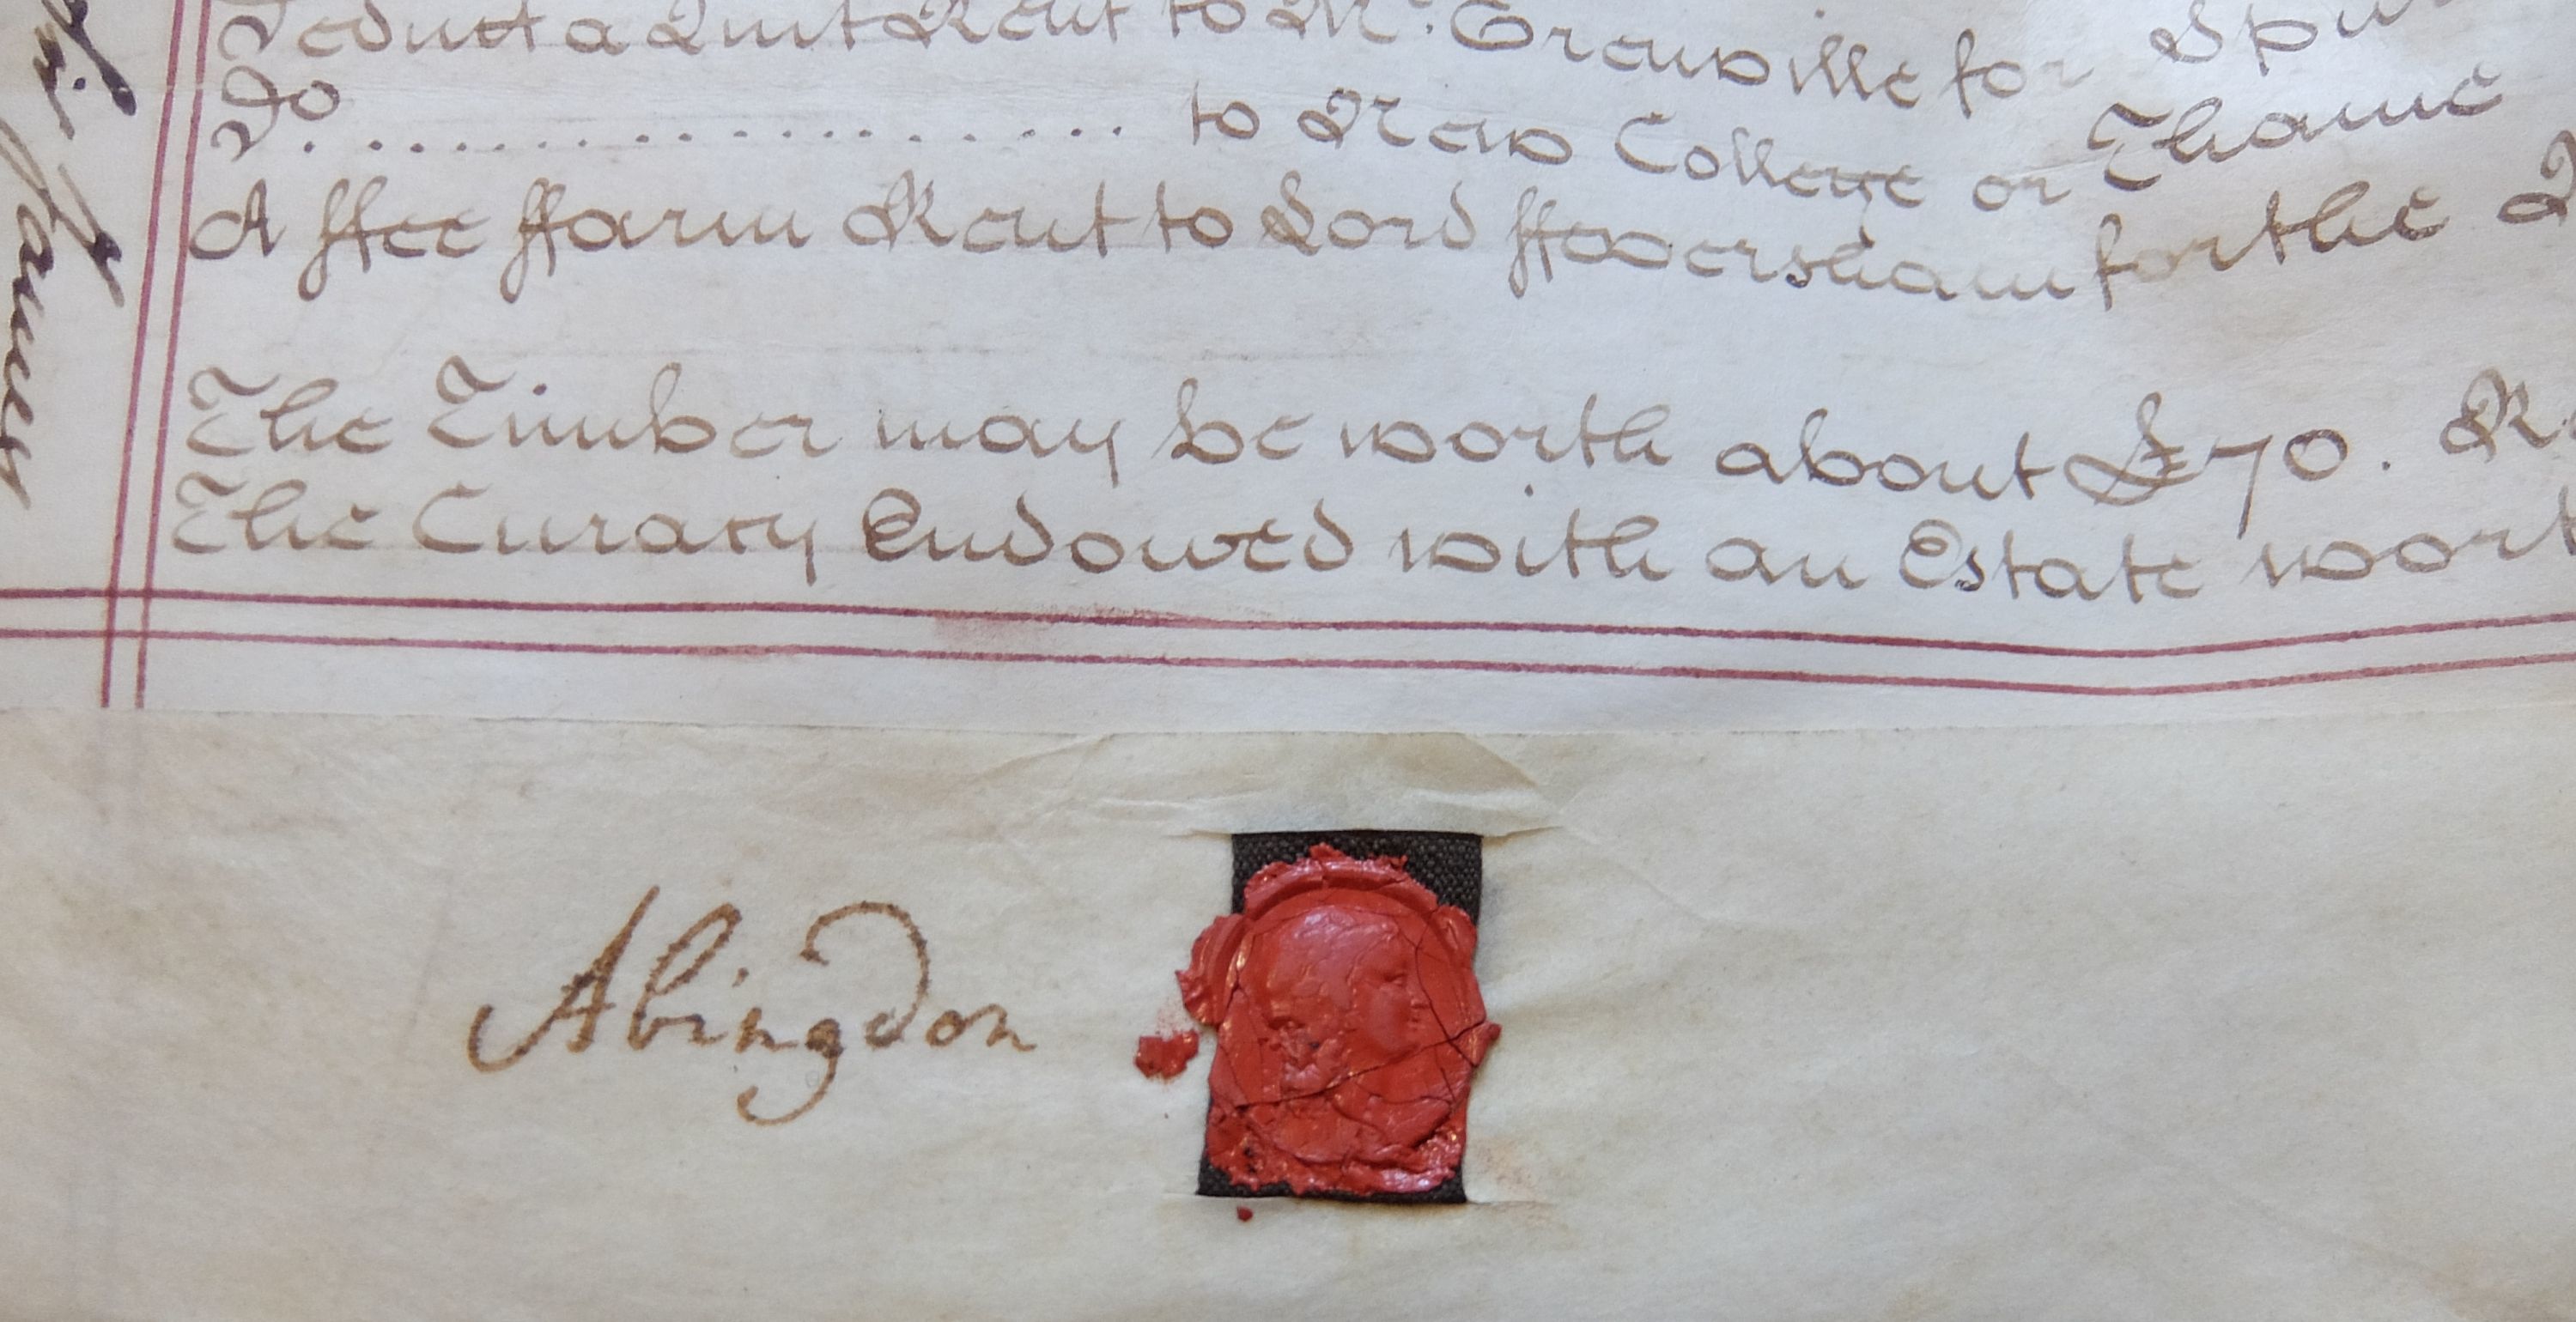 Deduct a Quit Rent to Mr. Grenville for
Do. . . . . . . . . . . . . . . . . . . . to New College or Thame
A ffee ffarm Rent to Lord ffeversham for the
The Timber may be worth about £70.
The Curacy Endowed with an Estate
Abingdon